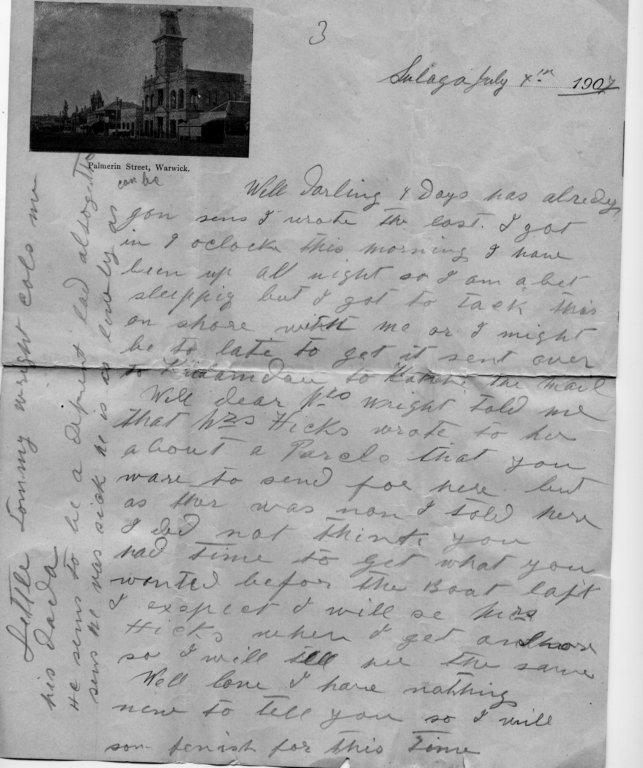 3
Sulaga July 4th 1907
Palmerin Street, Warwick.
Well Darling 4 Days has alredey
gon sens I wrote the last. I got
in 9 oclock this morning I have
been up all night so I am a bet
sleeppig but I got to tack this
on shore with me or I might
be to late to get it sent over
to to the mail
Well dear Mrs Wright told me
that Mrs Hicks wrote to her
about a Parcle that you
ware to send for here but
as ther was non I told here
I did not think you
had time to get what you
wanted befor the Boat laft
I expect I will se Mrs
Hicks when I get
so I will tell her the same
Well love I have nothing
new to tell you so I will
son fenish for this time
Little Tommy wright cols me
his dada
He sems to be a difrent lad altogether
sens he was sick he is as lovly as
can be